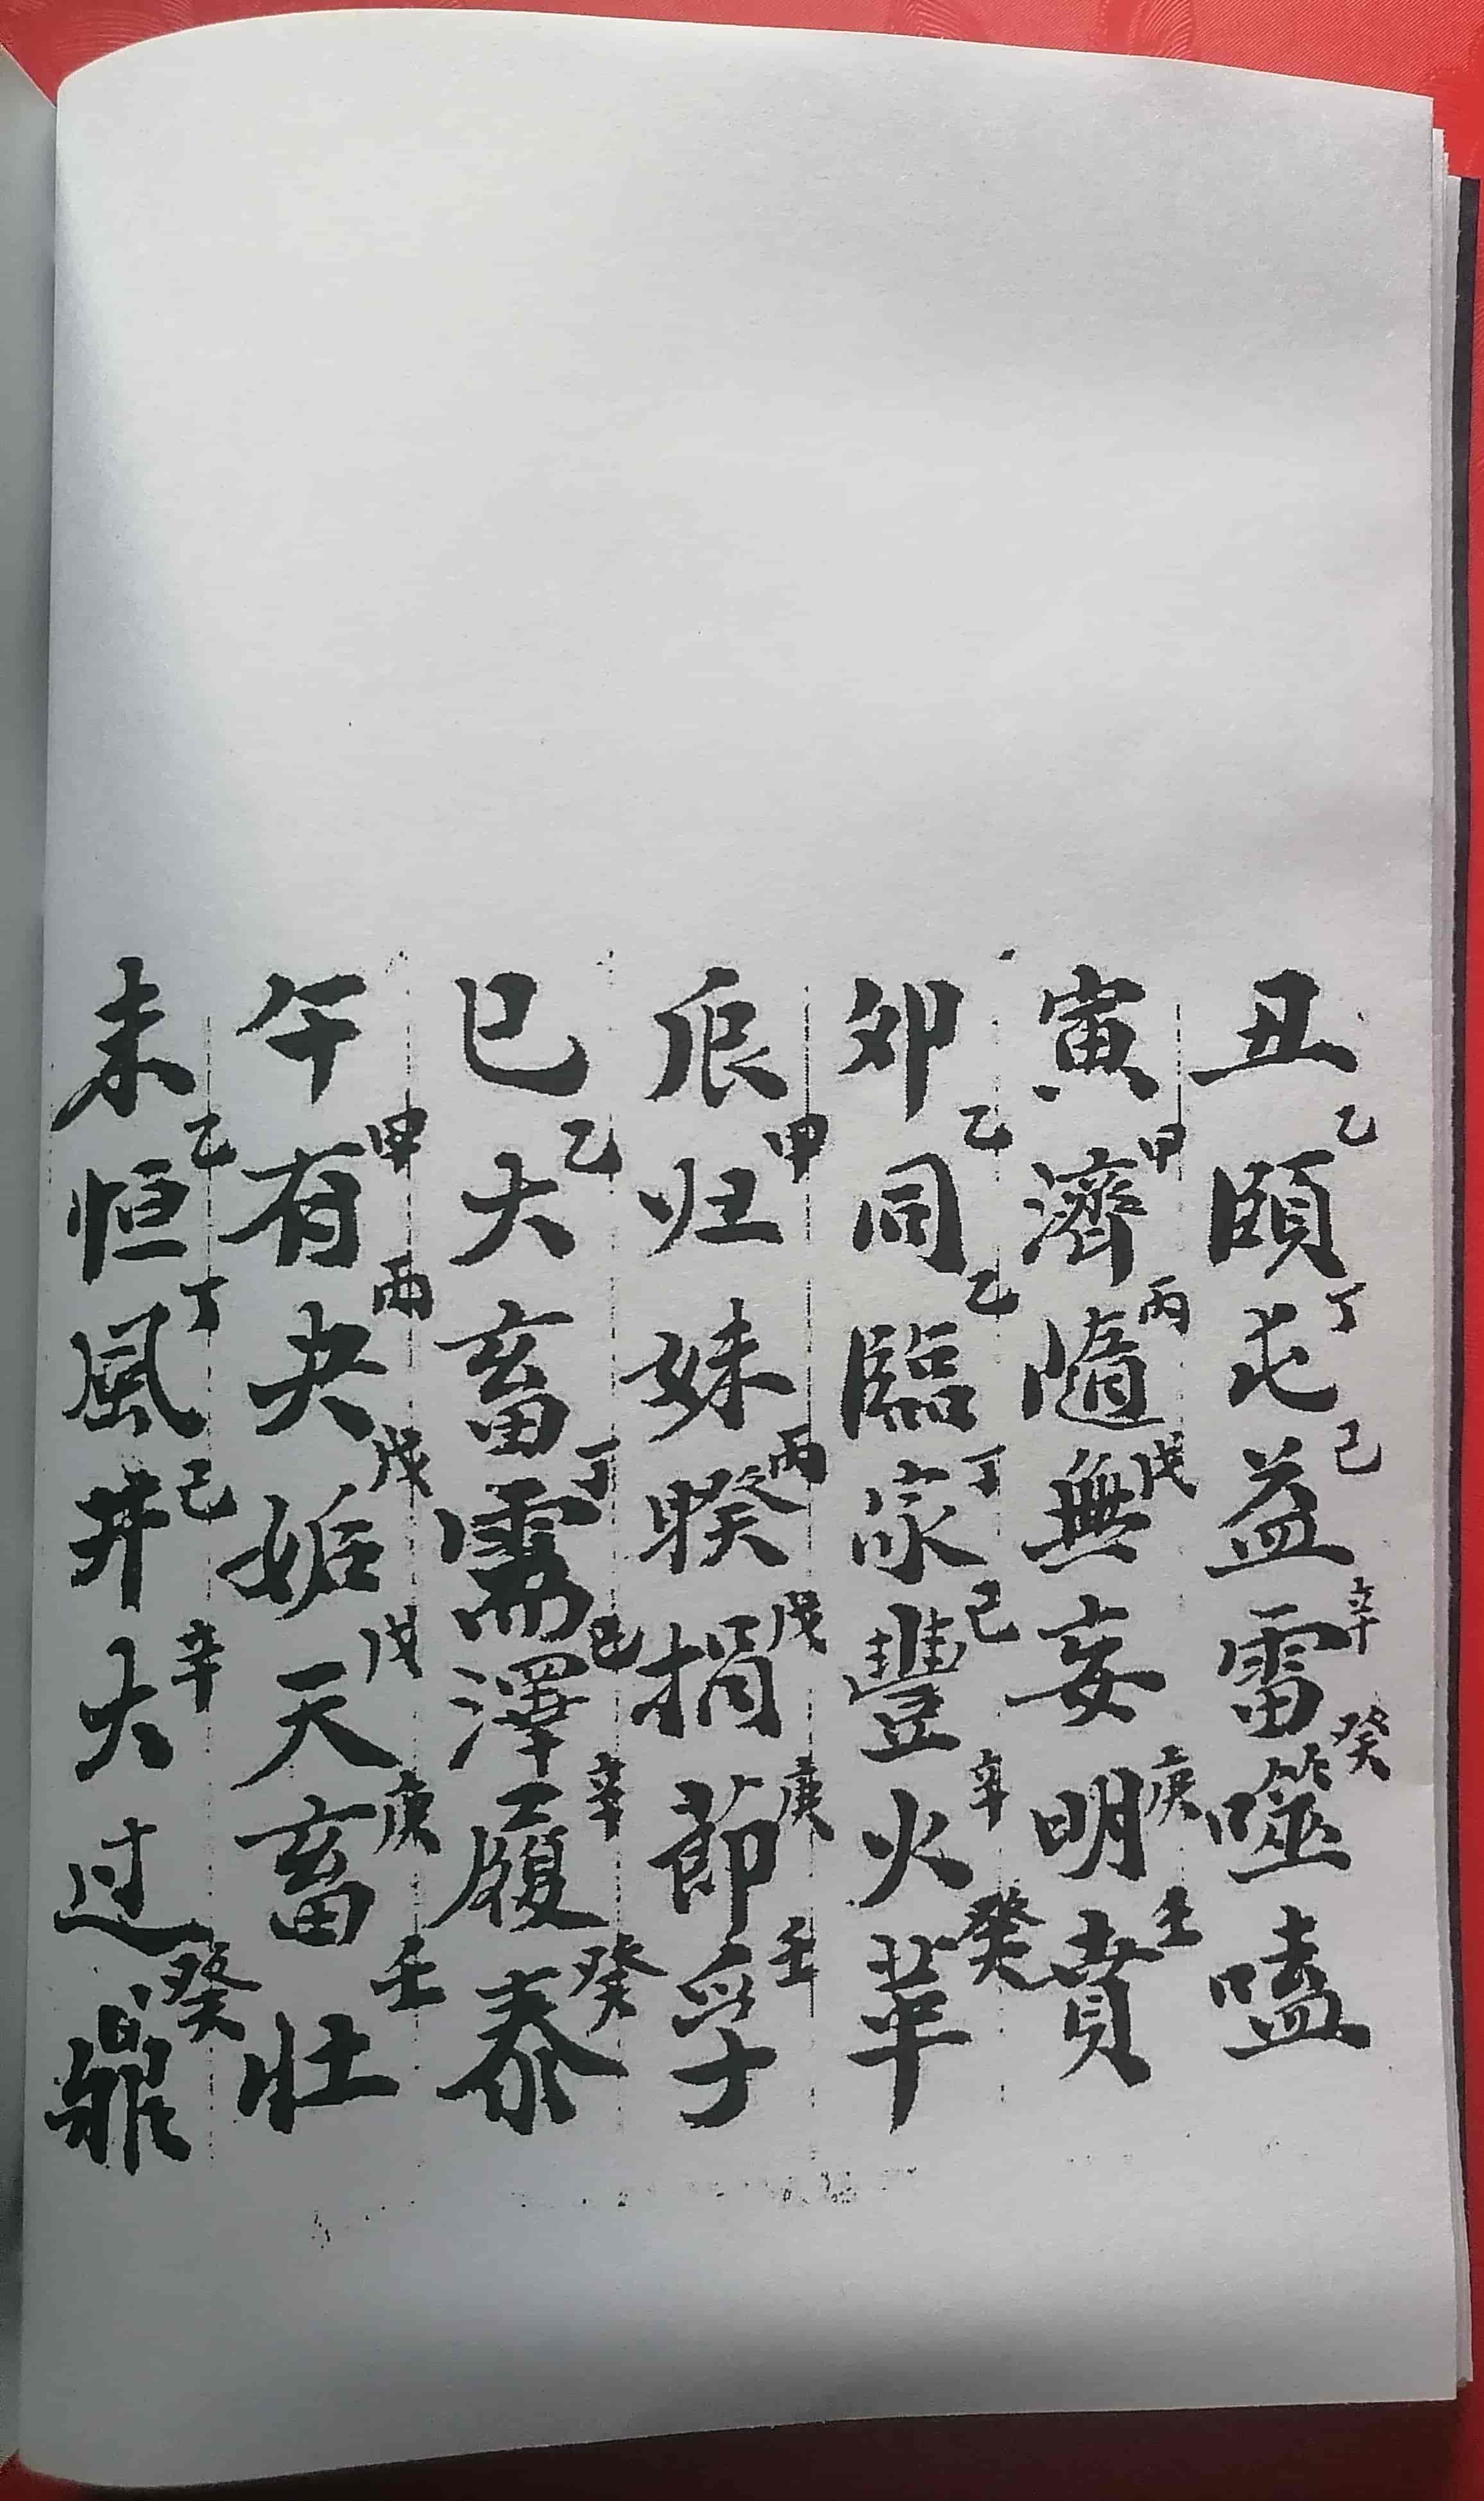 丑乙頤丁屯己益辛雷癸噬嗑
寅甲濟丙隨戊無妄庚明壬賁
卯乙同乙臨丁家己豐辛火癸革
辰甲归妹丙睽戊損庚節壬孚
巳乙大畜丁需己澤辛履癸泰
午甲有丙夬戊姤戊天庚畜壬壮
未乙恒丁風己井辛大过癸鼎